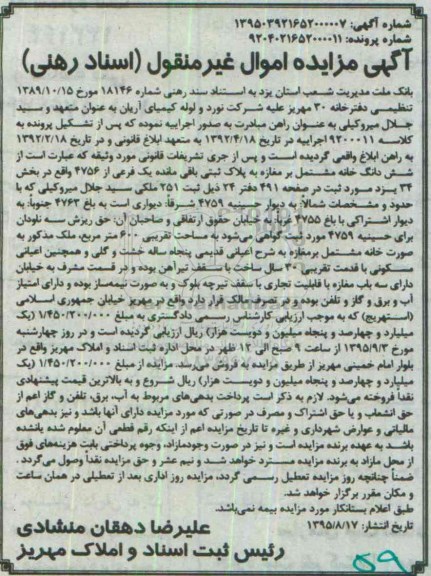 شماره آگهی: ۱۳۹۵۰۳۹۲۱۶۵۲۰۰۰۰۰۷
شماره پرونده: ۹۲۰۴۰۲۱۶۵۲۰۰۰۰۱۱
آگهی مزایده اموال غیرمنقول (اسناد رهنی)
بانک ملت مدیریت شعب استان یزد به استناد سند رهنی شماره ۱۸۱۴۶ مورخ ۱۳۸۹/۱۰/۱۵
تنظیمی دفترخانه ۳۰ مهریز علیه شرکت نورد و لوله کیمیای آریان به عنوان متعهد و سید
جلال میروکیلی به عنوان راهن مبادرت به صدور اجراییه نموده که پس از تشکیل پرونده به
کلاسه ۹۲۰۰۰۱۱ اجراییه در تاریخ ۱۳۹۲/۴/۱۸ به متعهد ابلاغ قانونی و در تاریخ ۱۳۹۲/۲/۱۸
به راهن ابلاغ واقعی گردیده است و پس از جری تشریفات قانونی مورد وثیقه که عبارت است از
شش دانگ خانه مشتمل بر مغازه به پلاک ثبتی باقی مانده یک فرعی از ۴۷۵۶ واقع در بخش
۳۴ یزد مورد ثبت در صفحه ۴۹۱ دفتر ۲۴ ذیل ثبت ۲۵۱ ملکی سید جلال میروکیلی که با
حدود و مشخصات شمالاً: به دیوار حسینیه ۴۷۵۹ شرقاً: دیواری است به باغ ۴۷۶۳ جنوباً: به
دیوار اشتراکی با باغ ۴۷۵۵ غرباً: به خیابان حقوق ارتفاقی و صاحبان آن: حق ریزش سه ناودان
برای حسینیه ۴۷۵۹ مورد ثبت گواهی می‌شود به مساحت تقریبی ۶۰۰ متر مربع، ملک مذکور به
صورت خانه مشتمل برمغازه به شرح اعیانی قدیمی پنجاه ساله خشت و گلی و همچنین اعیانی
مسکونی با قدمت تقریبی ۳۰ سال ساخت با سقف تیرآهن بوده و در قسمت مشرف به خیابان
دارای سه باب مغازه با قابلیت تجاری با سقف تیرچه بلوک و به صورت نیمه‌ساز بوده و دارای امتیاز
آب و برق و گاز و تلفن بوده و در تصرف مالک قرار دارد واقع در مهریز خیابان جمهوری اسلامی
(استهریج) که به موجب ارزیابی کارشناس رسمی دادگستری به مبلغ ۱/۴۵۰/۲۰۰/۰۰۰ (یک
میلیارد و چهارصد و پنجاه میلیون و دویست هزار) ریال ارزیابی گردیده است و در روز چهارشنبه
مورخ ۱۳۹۵/۹/۳ از ساعت ۹ صبح الی ۱۲ ظهر در محل اداره ثبت اسناد و املاک مهریز واقع در
بلوار امام خمینی مهریز از طریق مزایده به فروش می‌رسد. مزایده از مبلغ ۱/۴۵۰/۲۰۰/۰۰۰ (یک
میلیارد و چهارصد و پنجاه میلیون و دویست هزار) ریال شروع و به بالاترین قیمت پیشنهادی
نقداً فروخته می‌شود. لازم به ذکر است پرداخت بدهی‌های مربوط به آب، برق، تلفن و گاز اعم از
حق انشعاب و یا حق اشتراک و مصرف در صورتی که مورد مزایده دارای آنها باشد و نیز بدهی‌های
مالیاتی و عوارض شهرداری و غیره تا تاریخ مزایده اعم از اینکه رقم قطعی آن معلوم شده یانشده
باشد به عهده برنده مزایده است و نیز در صورت وجودمازاد، وجوه پرداختی بابت هزینه‌های فوق
از محل مازاد به برنده مزایده مسترد خواهد شد و نیم عشر و حق مزایده نقداً وصول می‌گردد.
ضمناً چنانچه روز مزایده تعطیل رسمی گردد، مزایده روز اداری بعد از تعطیلی در همان ساعت
و مکان مقرر برگزار خواهد شد.
طبق اعلام بستانکار مورد مزایده بیمه نمی‌باشد.
تاریخ انتشار: ۱۳۹۵/۸/۱۷
علیرضا دهقان منشادی
رئیس ثبت اسناد و املاک مهریز
۵۹